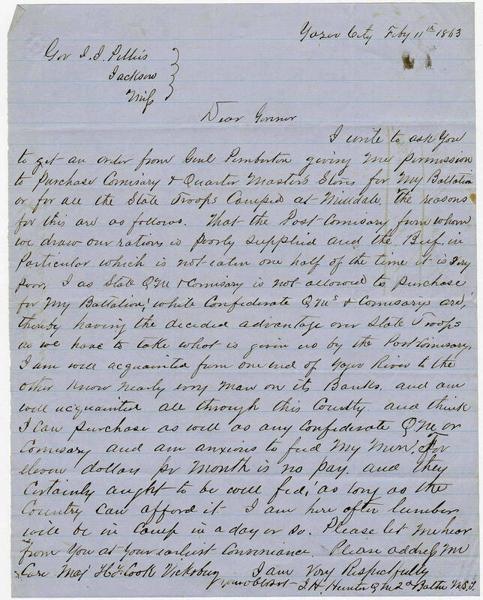 Yazoo City Feby 11th 1863
Gov J. J. Pettus
Jackson
Miss
Dear Governor
I write to ask You
to get an order from Genl Pemberton giving Me permission
to Purchase Comisary & Quarter Masters Stores for My Batallion
or for all the State Troops Camped at The reasons
for this are as follows. That the Post Comisary from whom
we draw our rations is poorly supplied and the Beef in
Particular which is not eaten one half of the time it is Very
poor, I as State QM & Comisary is not allowed to purchase
for My Battalion, while Confederate QMs & Comisarys are,
thereby having the decided advantage over State Troops
as we have to take what is given us by the Post Comisary,
I am well acquainted from one end of Yazoo River to the
other Know nearly every man on its Banks, and am
well acquainted all through this County. and think
I can purchase as well as any Confederate QM or
Comisary and am anxious to feed My Men, For
eleven dollars pr Month is no pay, and they
Certainly aught to be well fed, as long as the
Country can afford it I am here after lumber
will be in Camp in a day or so. Please let me hear
from You at Your earliest Convenience. Please address Me
Care Maj H. F. Cook Vicksburg I am Very Respectfully
Your obt Svt J. H. Hunter QM 2d Battn M.S.T.